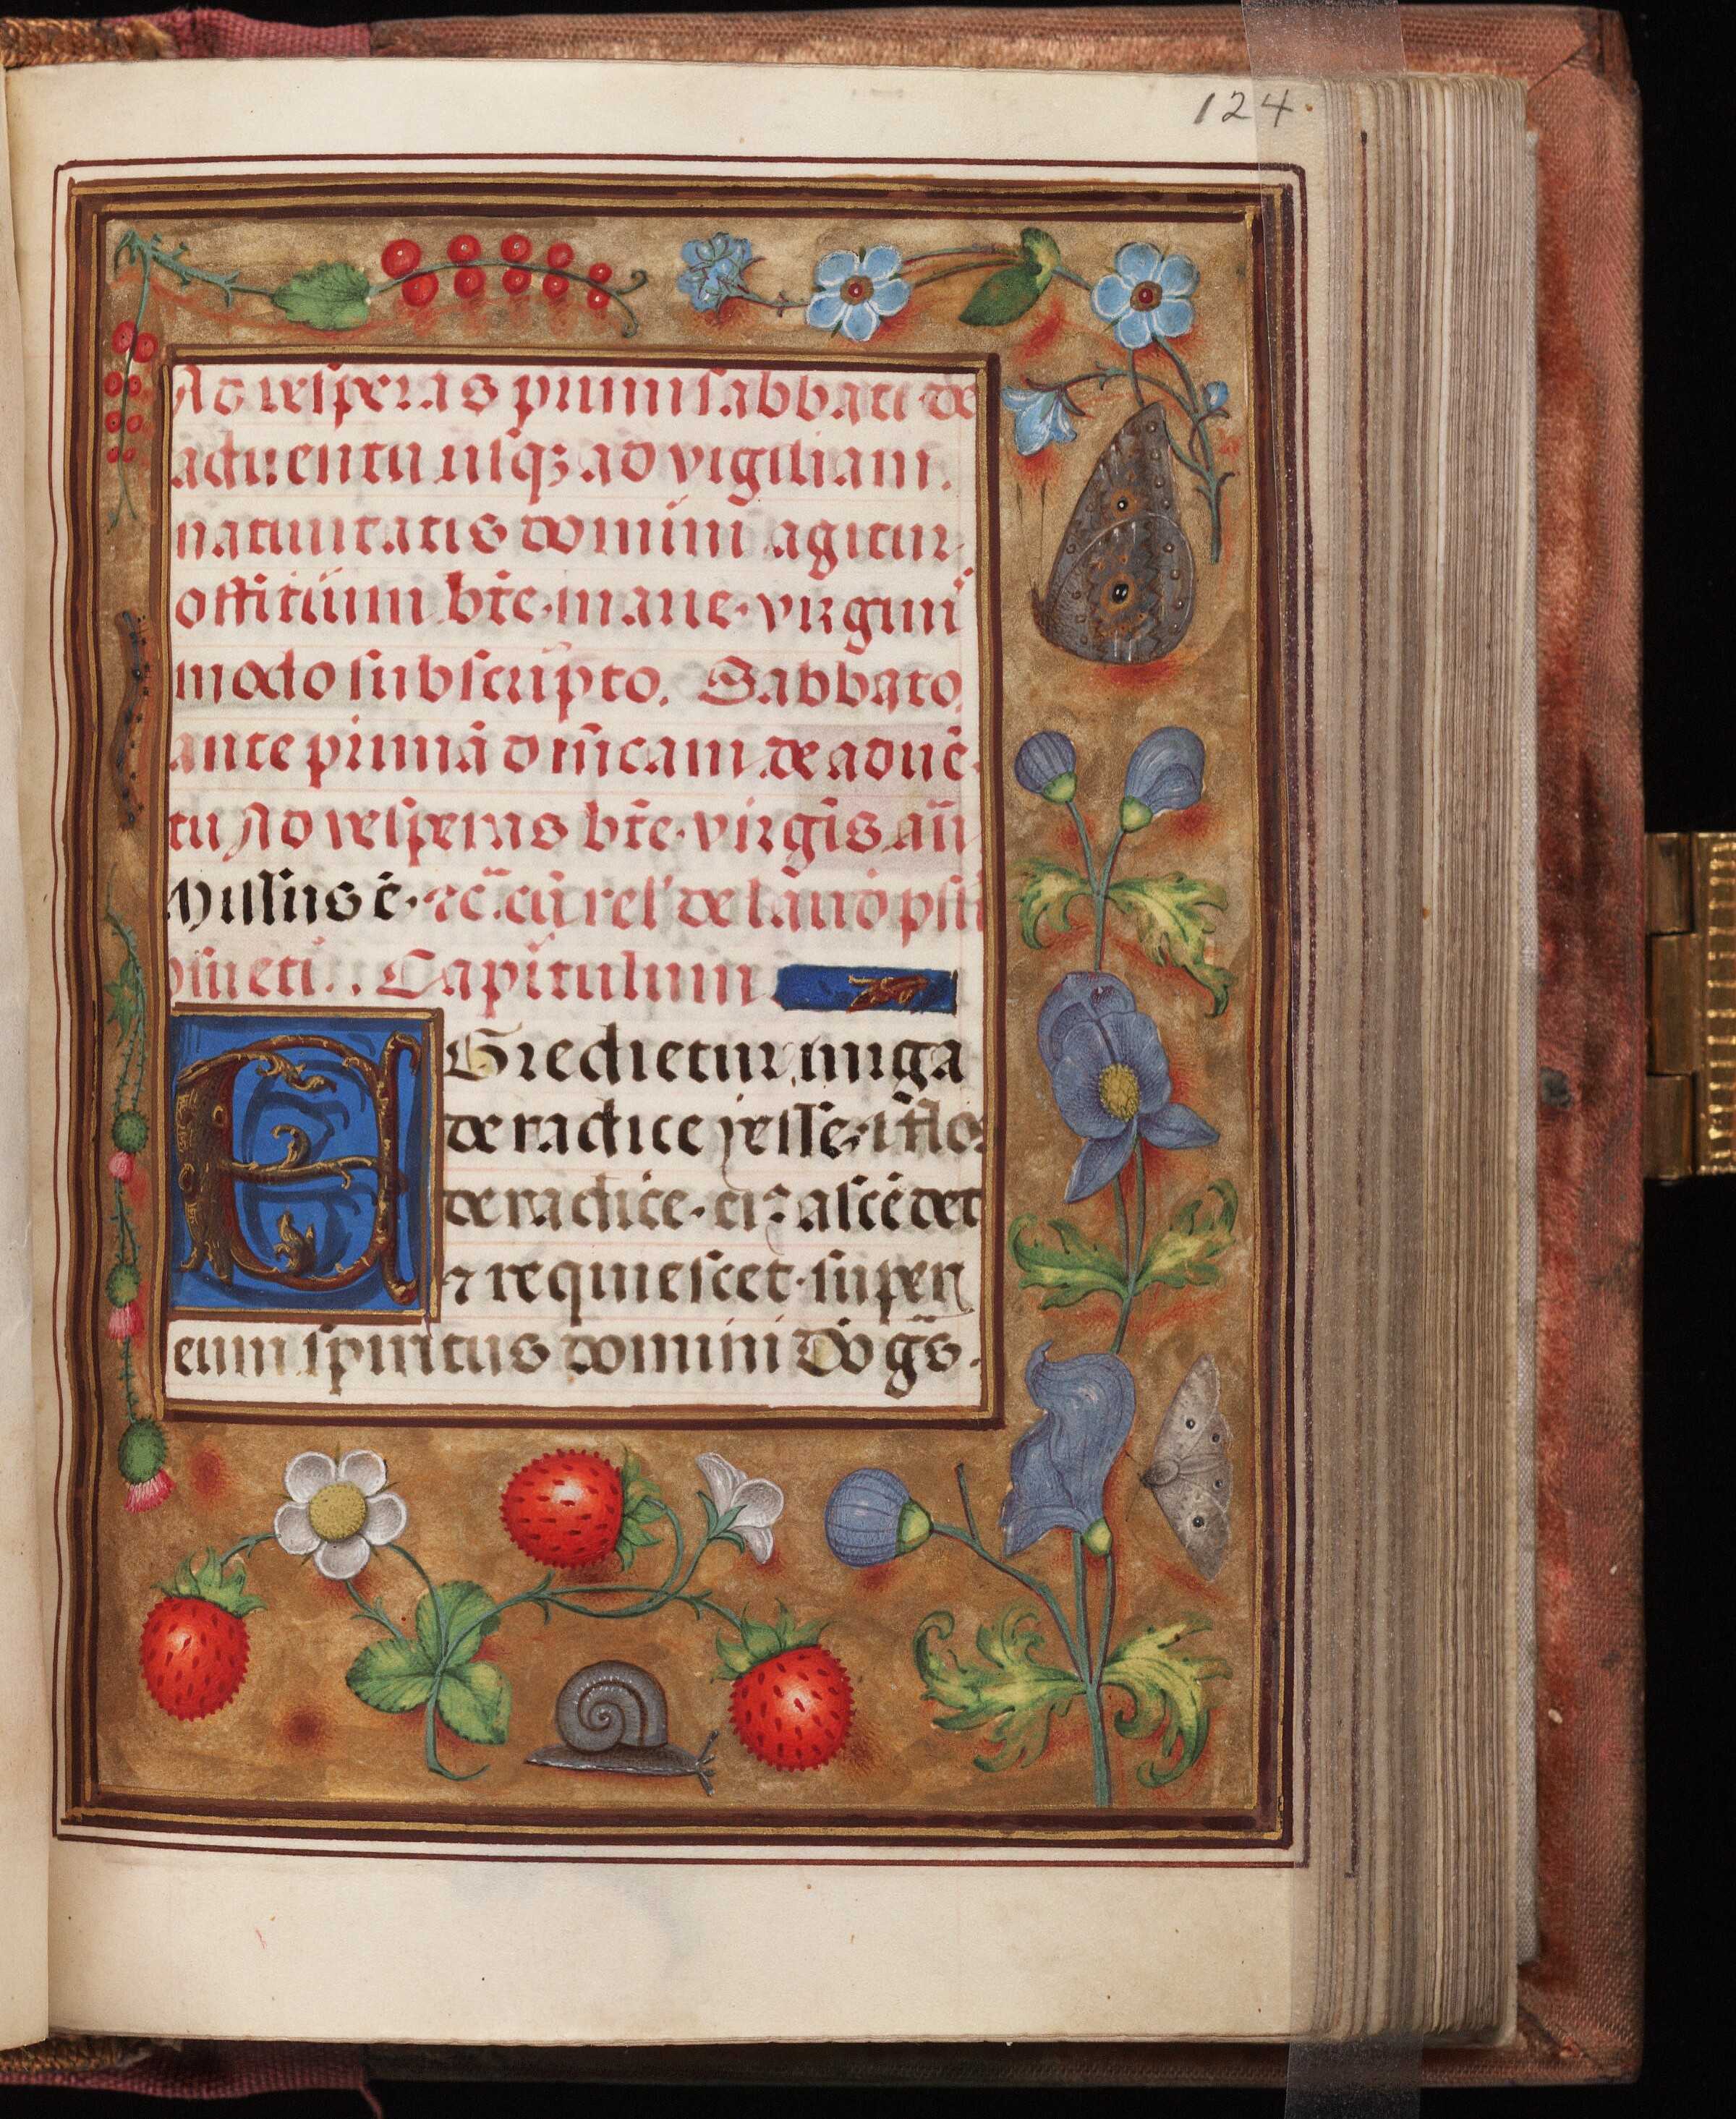 124
Ad vesperas primi sabbati de
aduentu usqꝫ ad vigiliam.
natiuitatis domini agitur
offitium bt̄e marie virginī
modo subscripto. Sabbato
ante primā dn̄icam de aduē
tu Ad vesperas bt̄e virgīs an̄
Missus ē. ⁊c̄. cū rel' de laud
Capitulum
EGredietur uirga
de radice yesse ⁊ flos
de radice eiꝰ ascēdet
⁊ requiescet super
eum spiritus domini Do gs̄.